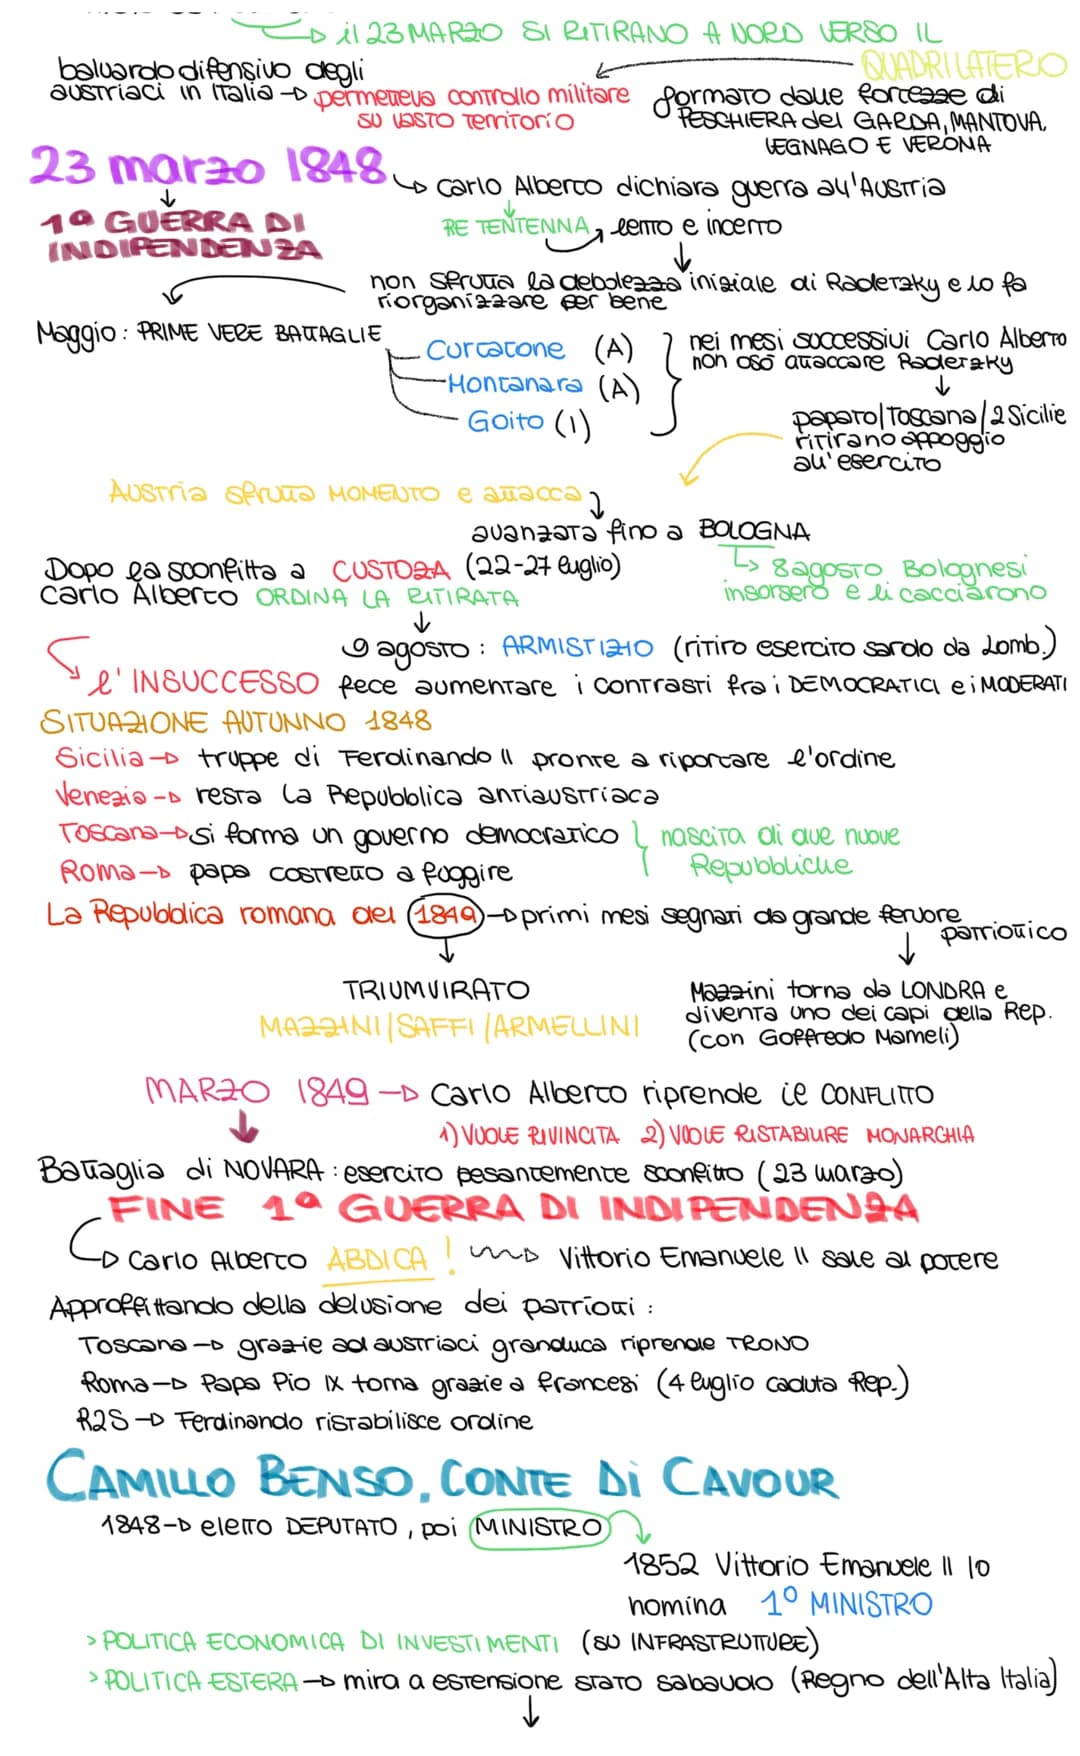 il 23 MARZO SI RITIRANO A NORD VERSO IL
QUADRILATERO
baluardo difensivo degli
austriaci in Italia → permetteva controllo militare
su vasto territorio
formato dalle fortezze di
PESCHIERA del GARDA, MANTOVA,
LEGNAGO E VERONA
23 marzo 1848
Carlo Alberto dichiara guerra all'Austria
1ª GUERRA DI
INDIPENDENZA
RE TENTENNA, lento e incerto
non sfrutta la debolezza iniziale di Radetzky e lo fa
riorganizzare per bene
Maggio: PRIME VERE BATTAGLIE
Curtatone (A)
Montanara (A)
Goito (I)
nei mesi successivi Carlo Alberto
non osò attaccare Radetzky
papato/Toscana/2 Sicilie
ritirano appoggio
all'esercito
Austria sfrutta MOMENTO e attacca
avanzata fino a BOLOGNA
8 agosto Bolognesi
insorsero e li cacciarono
Dopo la sconfitta a CUSTOZA (22-27 luglio)
Carlo Alberto ORDINA LA RITIRATA
9 agosto: ARMISTIZIO (ritiro esercito sardo da Lomb.)
l'INSUCCESSO fece aumentare i contrasti fra i DEMOCRATICI e i MODERATI
SITUAZIONE AUTUNNO 1848
Sicilia → truppe di Ferdinando II pronte a riportare l'ordine
Venezia → resta la Repubblica antiaustriaca
Toscana → si forma un governo democratico
Roma → papa costretto a fuggire
nascita di due nuove
Repubbliche
La Repubblica romana del 1849 → primi mesi segnati da grande fervore
patriottico
TRIUMVIRATO
MAZZINI/SAFFI/ARMELLINI
Mazzini torna da LONDRA e
diventa uno dei capi della Rep.
(con Goffredo Mameli)
MARZO 1849 → Carlo Alberto riprende il CONFLITTO
1) VUOLE RIVINCITA 2) VUOLE RISTABILIRE MONARCHIA
Battaglia di NOVARA: esercito pesantemente sconfitto (23 marzo)
FINE 1ª GUERRA DI INDIPENDENZA
Carlo Alberto ABDICA! → Vittorio Emanuele II sale al potere
Approfittando della delusione dei patrioti:
Toscana → grazie ad austriaci granduca riprende TRONO
Roma → Papa Pio IX torna grazie a francesi (4 luglio caduta Rep.)
R2S → Ferdinando ristabilisce ordine
CAMILLO BENSO, CONTE DI CAVOUR
1848 → eletto DEPUTATO, poi MINISTRO
1852 Vittorio Emanuele II lo
nomina 1º MINISTRO
> POLITICA ECONOMICA DI INVESTIMENTI (SU INFRASTRUTTURE)
> POLITICA ESTERA → mira a estensione stato sabaudo (Regno dell'Alta Italia)